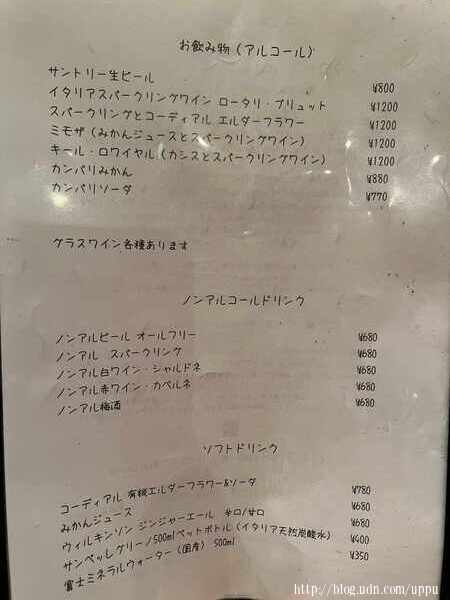 お飲み物(アルコール)
サントリー生ビール ¥800
イタリアスパークリングワイン ロータリ・ブリュット ¥1200
スパークリングとコーディアル エルダーフラワー ¥1200
ミモザ(みかんジュースとスパークリングワイン) ¥1200
キール・ロワイヤル(カシスとスパークリングワイン) ¥1200
カンパリみかん ¥880
カンパリソーダ ¥770
グラスワイン各種あります
ノンアルコールドリンク
ノンアルビール オールフリー ¥680
ノンアル スパークリング ¥680
ノンアル白ワイン・シャルドネ ¥680
ノンアル赤ワイン・カベルネ ¥680
ノンアル梅酒 ¥680
ソフトドリンク
コーディアル 有機エルダーフラワー&ソーダ ¥780
みかんジュース ¥680
ウィルキンソン ジンジャーエール 辛口/甘口 ¥680
サンペレグリーノ500mlペットボトル(イタリア天然炭酸水) ¥400
富士ミネラルウォーター(国産) 500ml ¥350
http://blog.udn.com/uppu